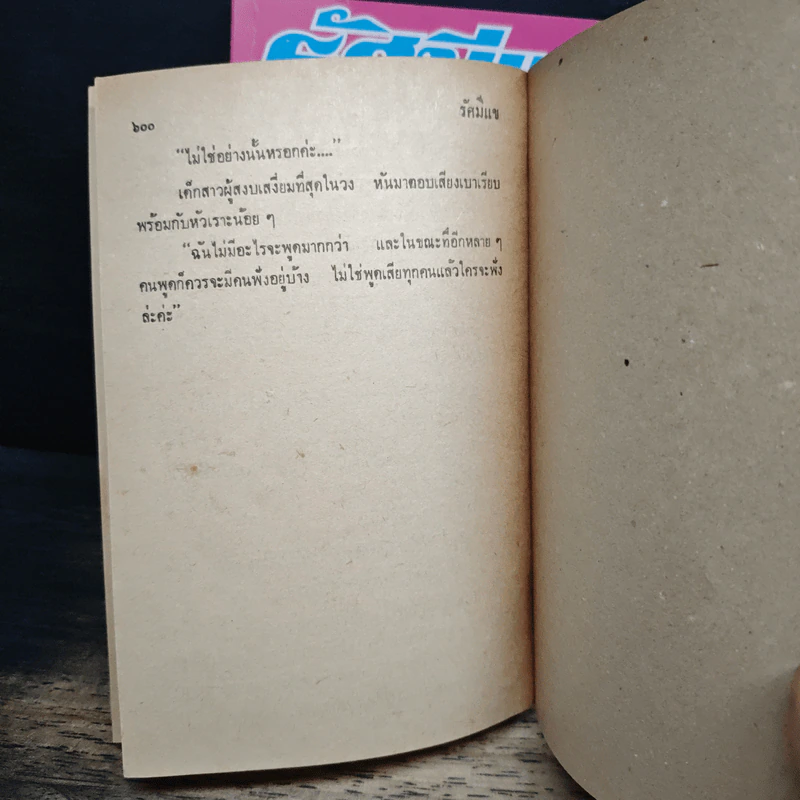 รัศมีแข
๖๐๐ รัศมีแข
“ไม่ใช่อย่างนั้นหรอกค่ะ....”
เด็กสาวผู้สงบเสงี่ยมที่สุดในวง หันมาตอบเสียงเบาเรียบ
พร้อมกับหัวเราะน้อย ๆ
“ฉันไม่มีอะไรจะพูดมากกว่า และในขณะที่อีกหลาย ๆ
คนพูดก็ควรจะมีคนฟังอยู่บ้าง ไม่ใช่พูดเสียทุกคนแล้วใครจะฟัง
ล่ะค่ะ”